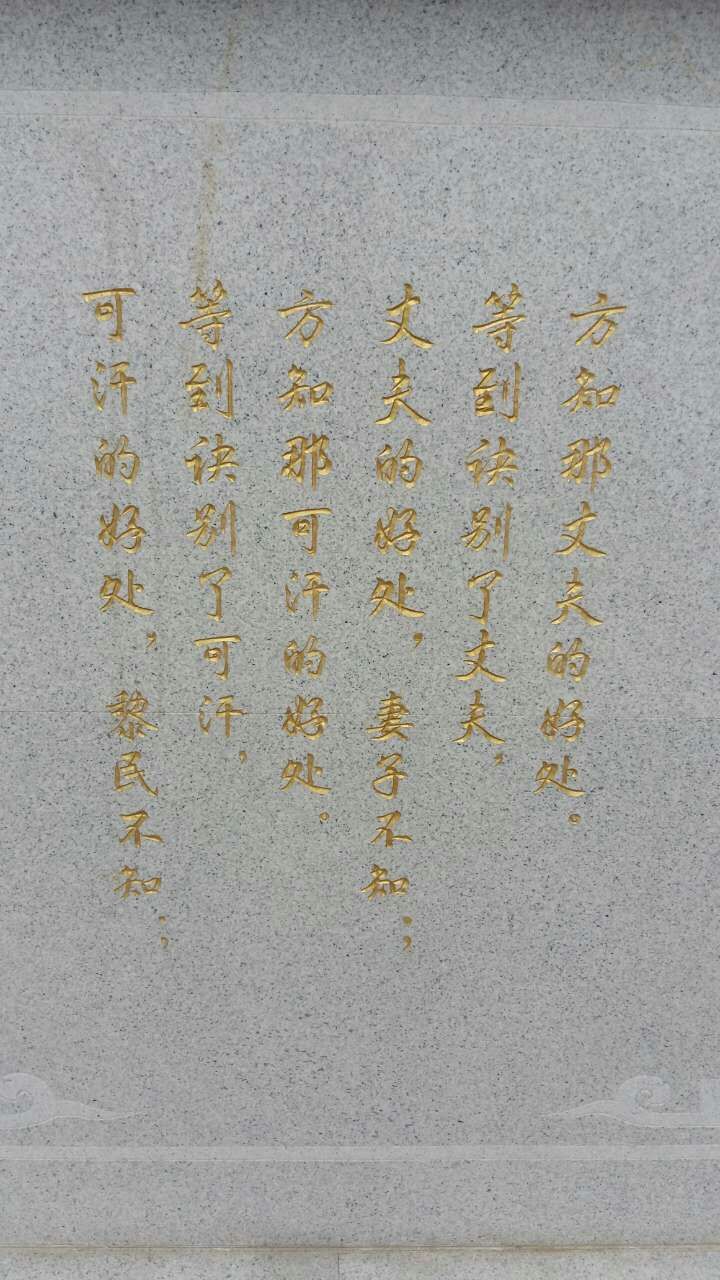 可汗的好处，黎民不知；
等到诀别了可汗，
方知那可汗的好处。
丈夫的好处，妻子不知；
等到诀别了丈夫，
方知那丈夫的好处。